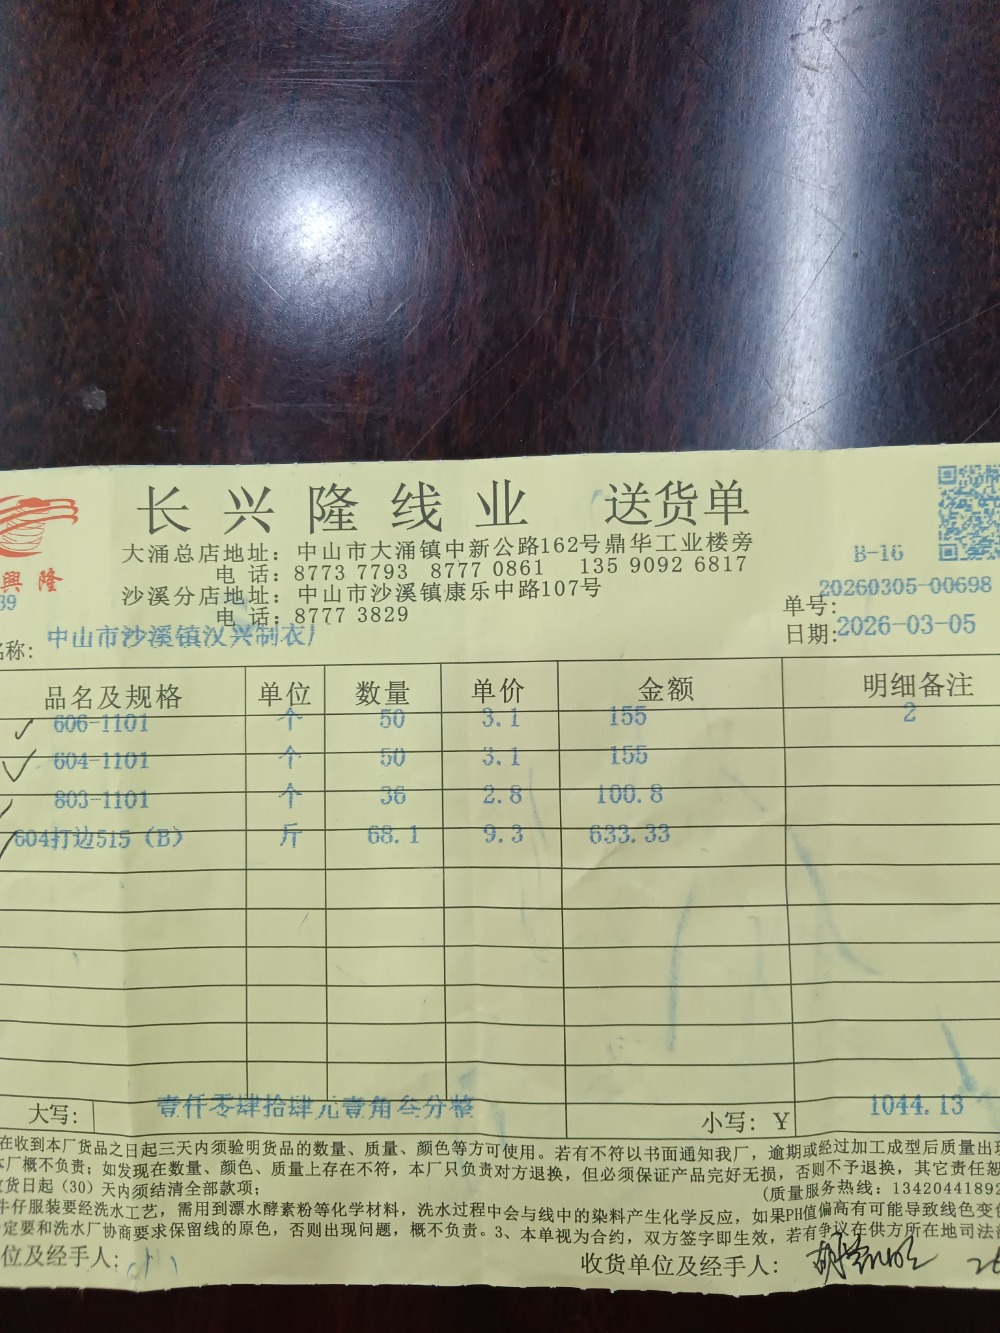 长兴隆线业 送货单
大涌总店地址：中山市大涌镇中新公路162号鼎华工业楼旁
电 话：8773 7793 8777 0861 135 9092 6817
沙溪分店地址：中山市沙溪镇康乐中路107号
电 话：8777 3829
興 隆
39
B-16
单号：20260305-00698
日期：2026-03-05
名称：中山市沙溪镇汉兴制衣厂
品名及规格 单位 数量 单价 金额 明细备注
606-1101 个 50 3.1 155 2
604-1101 个 50 3.1 155
803-1101 个 36 2.8 100.8
604打边515（B） 斤 68.1 9.3 633.33
大写： 壹仟零肆拾肆元壹角叁分整 小写：￥ 1044.13
在收到本厂货品之日起三天内须验明货品的数量、质量、颜色等方可使用。若有不符以书面通知我厂，逾期或经过加工成型后质量出现
本厂概不负责；如发现在数量、颜色、质量上存在不符，本厂只负责对方退换，但必须保证产品完好无损，否则不予退换，其它责任恕
收货日起（30）天内须结清全部款项；
（质量服务热线：1342044189２
牛仔服装要经洗水工艺，需用到漂水酵素粉等化学材料，洗水过程中会与线中的染料产生化学反应，如果PH值偏高有可能导致线色变
定要和洗水厂协商要求保留线的原色，否则出现问题，概不负责。3、本单视为合约，双方签字即生效，若有争议在供方所在地司法
位及经手人：
收货单位及经手人：